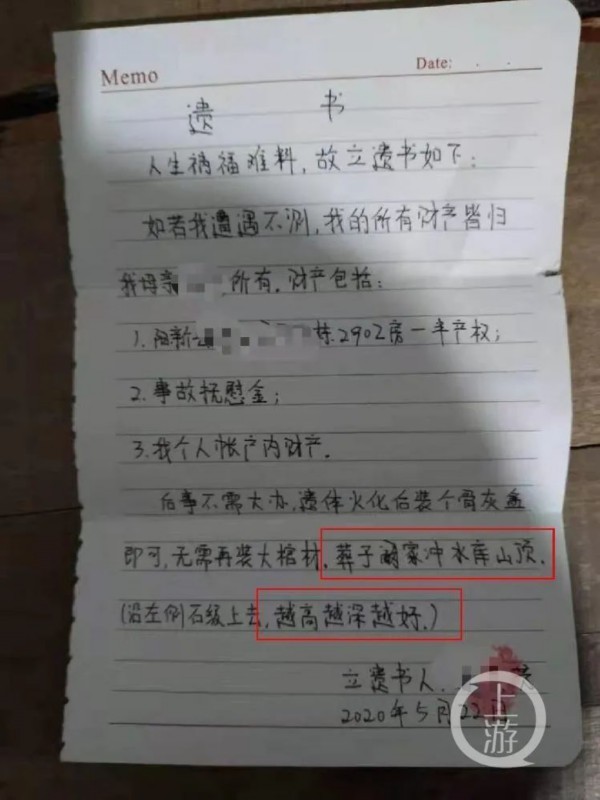 Memo
Date: . .
遗 书
人生祸福难料,故立遗书如下:
如若我遭遇不测,我的所有财产皆归
我母亲 所有.财产包括:
1.阳新 栋2902房一半产权;
2.事故抚慰金;
3.我个人帐户内财产.
后事不需大办,遗体火化后装个骨灰盒
即可,无需再装大棺材.葬于 家冲水库山顶.
(沿左侧石级上去,越高越深越好.)
立遗书人.
2020年5月22日
上游